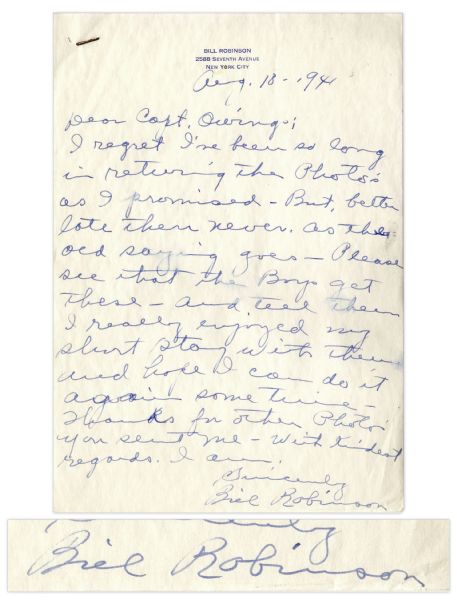 BILL ROBINSON
2588 SEVENTH AVENUE
NEW YORK CITY
Aug. 18-1941
Dear Capt. Owings;
I regret I've been so long
in returing the Photo's
as I promised - But, better
late then never. as the
old saying goes - Please
see that the Boys get
these - and tell them
I really enjoyed my
short stay with them
and hope I can do it
again some time -
Thanks for other Photos
you sent me - With kindest
regards. I am.
Sincerely
Bill Robinson
Sincerely
Bill Robinson